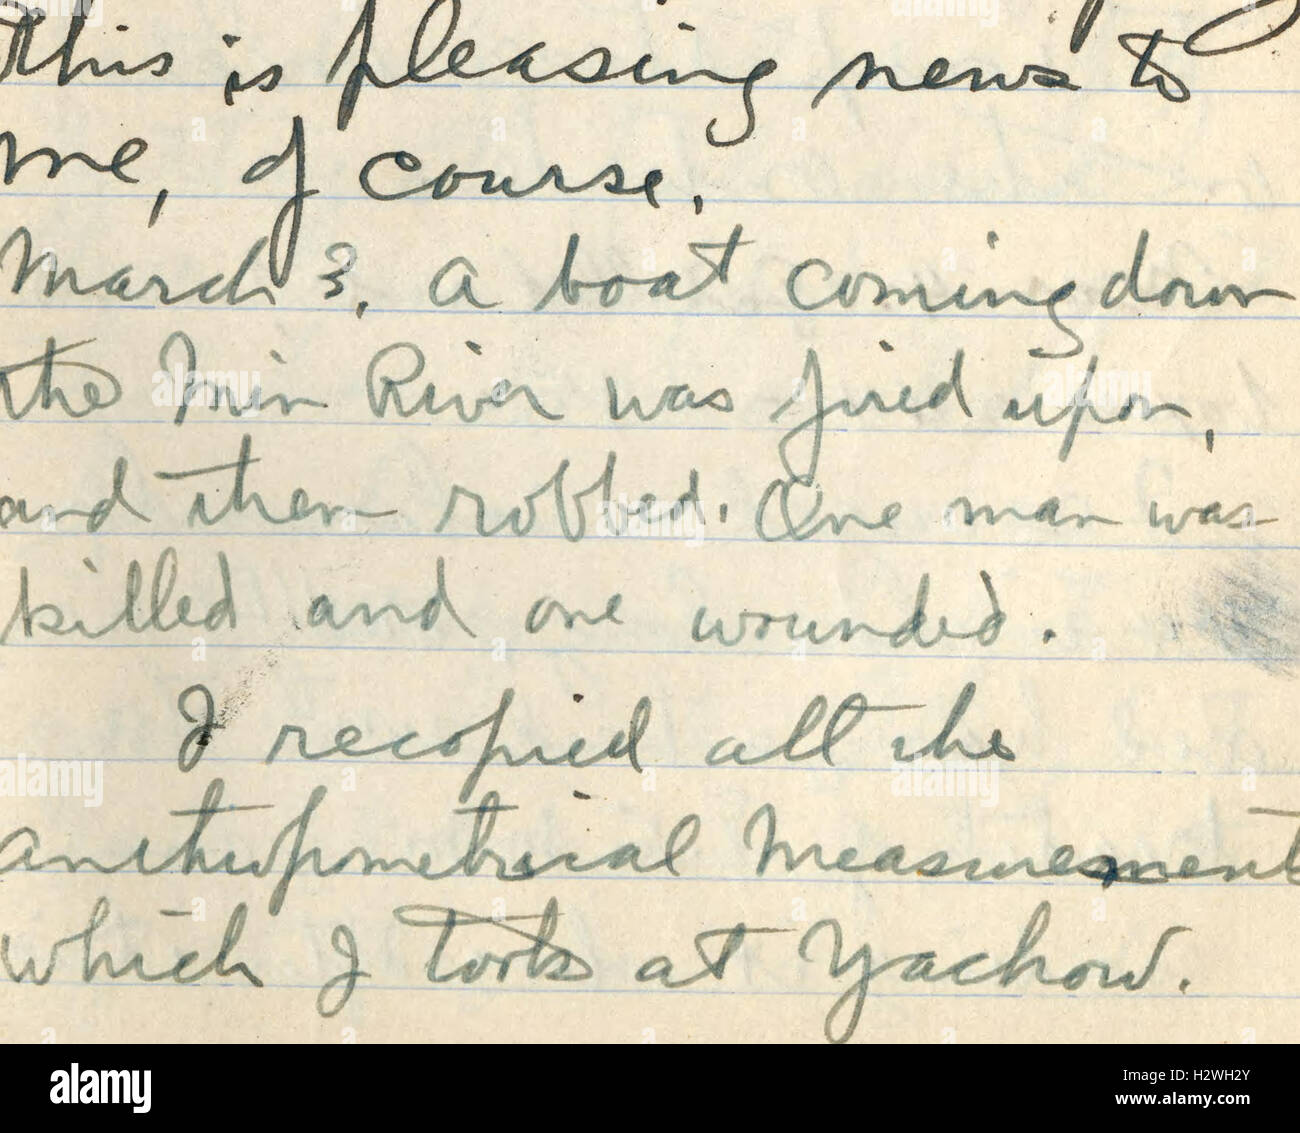 This is pleasing news to
me, of course.
March 3. A boat coming down
the Min River was fired upon,
and then robbed. One man was
killed and one wounded.
I recopied all the
anthropometrical measurement
which I took at Yachow.
alamy
Image ID: H2WH2Y
www.alamy.com